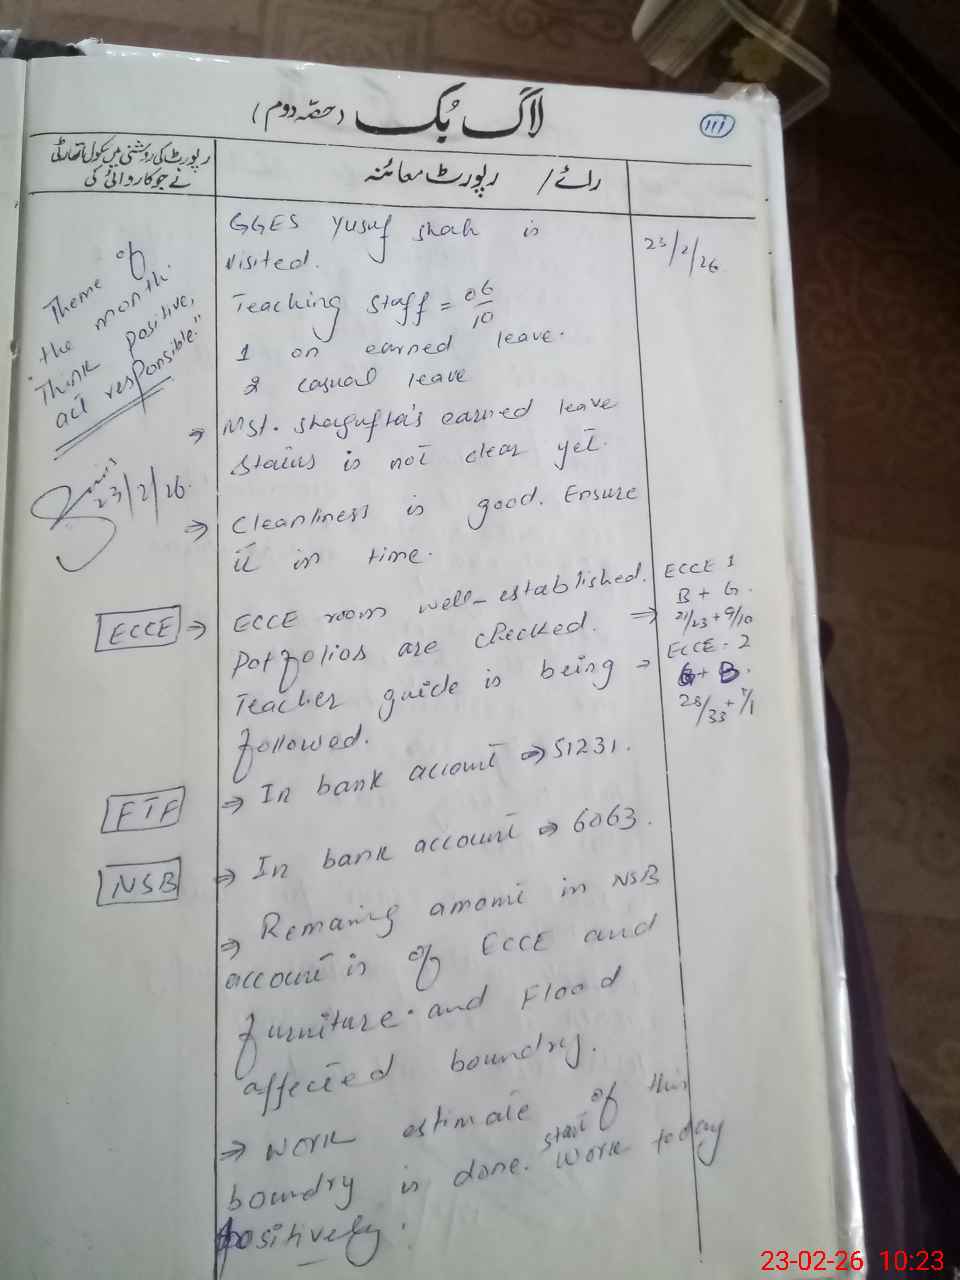 لاگ بُک (حصّہ دوم)
111
رپورٹ کی روشنی میں سکول اتھارٹی
نے جو کاروائی کی
رائے / رپورٹ معائنہ
GGES Yusuf shah is
visited.
23/2/26
Teaching staff = 06/10
1 on earned leave.
2 casual leave
Theme of
the month.
"Think positive,
act responsible."
23/2/26.
⇒ Mst. Shagufta's earned leave
status is not clear yet.
⇒ Cleanliness is good. Ensure
it in time.
ECCE ⇒ ECCE room well-established.
Potfolios are checked. ⇒
Teacher guide is being →
followed.
ECCE 1
B + G.
21/23 + 9/10
ECCE - 2
G + B.
28/33 +
FTF ⇒ In bank account ⇒ 51231.
NSB ⇒ In bank account ⇒ 6063.
⇒ Remaning amomt in NSB
account is of ECCE and
furniture. and Flood
affected boundry.
⇒ Work estimate of this
boundry is done. start work today
positively.
23-02-26 10:23